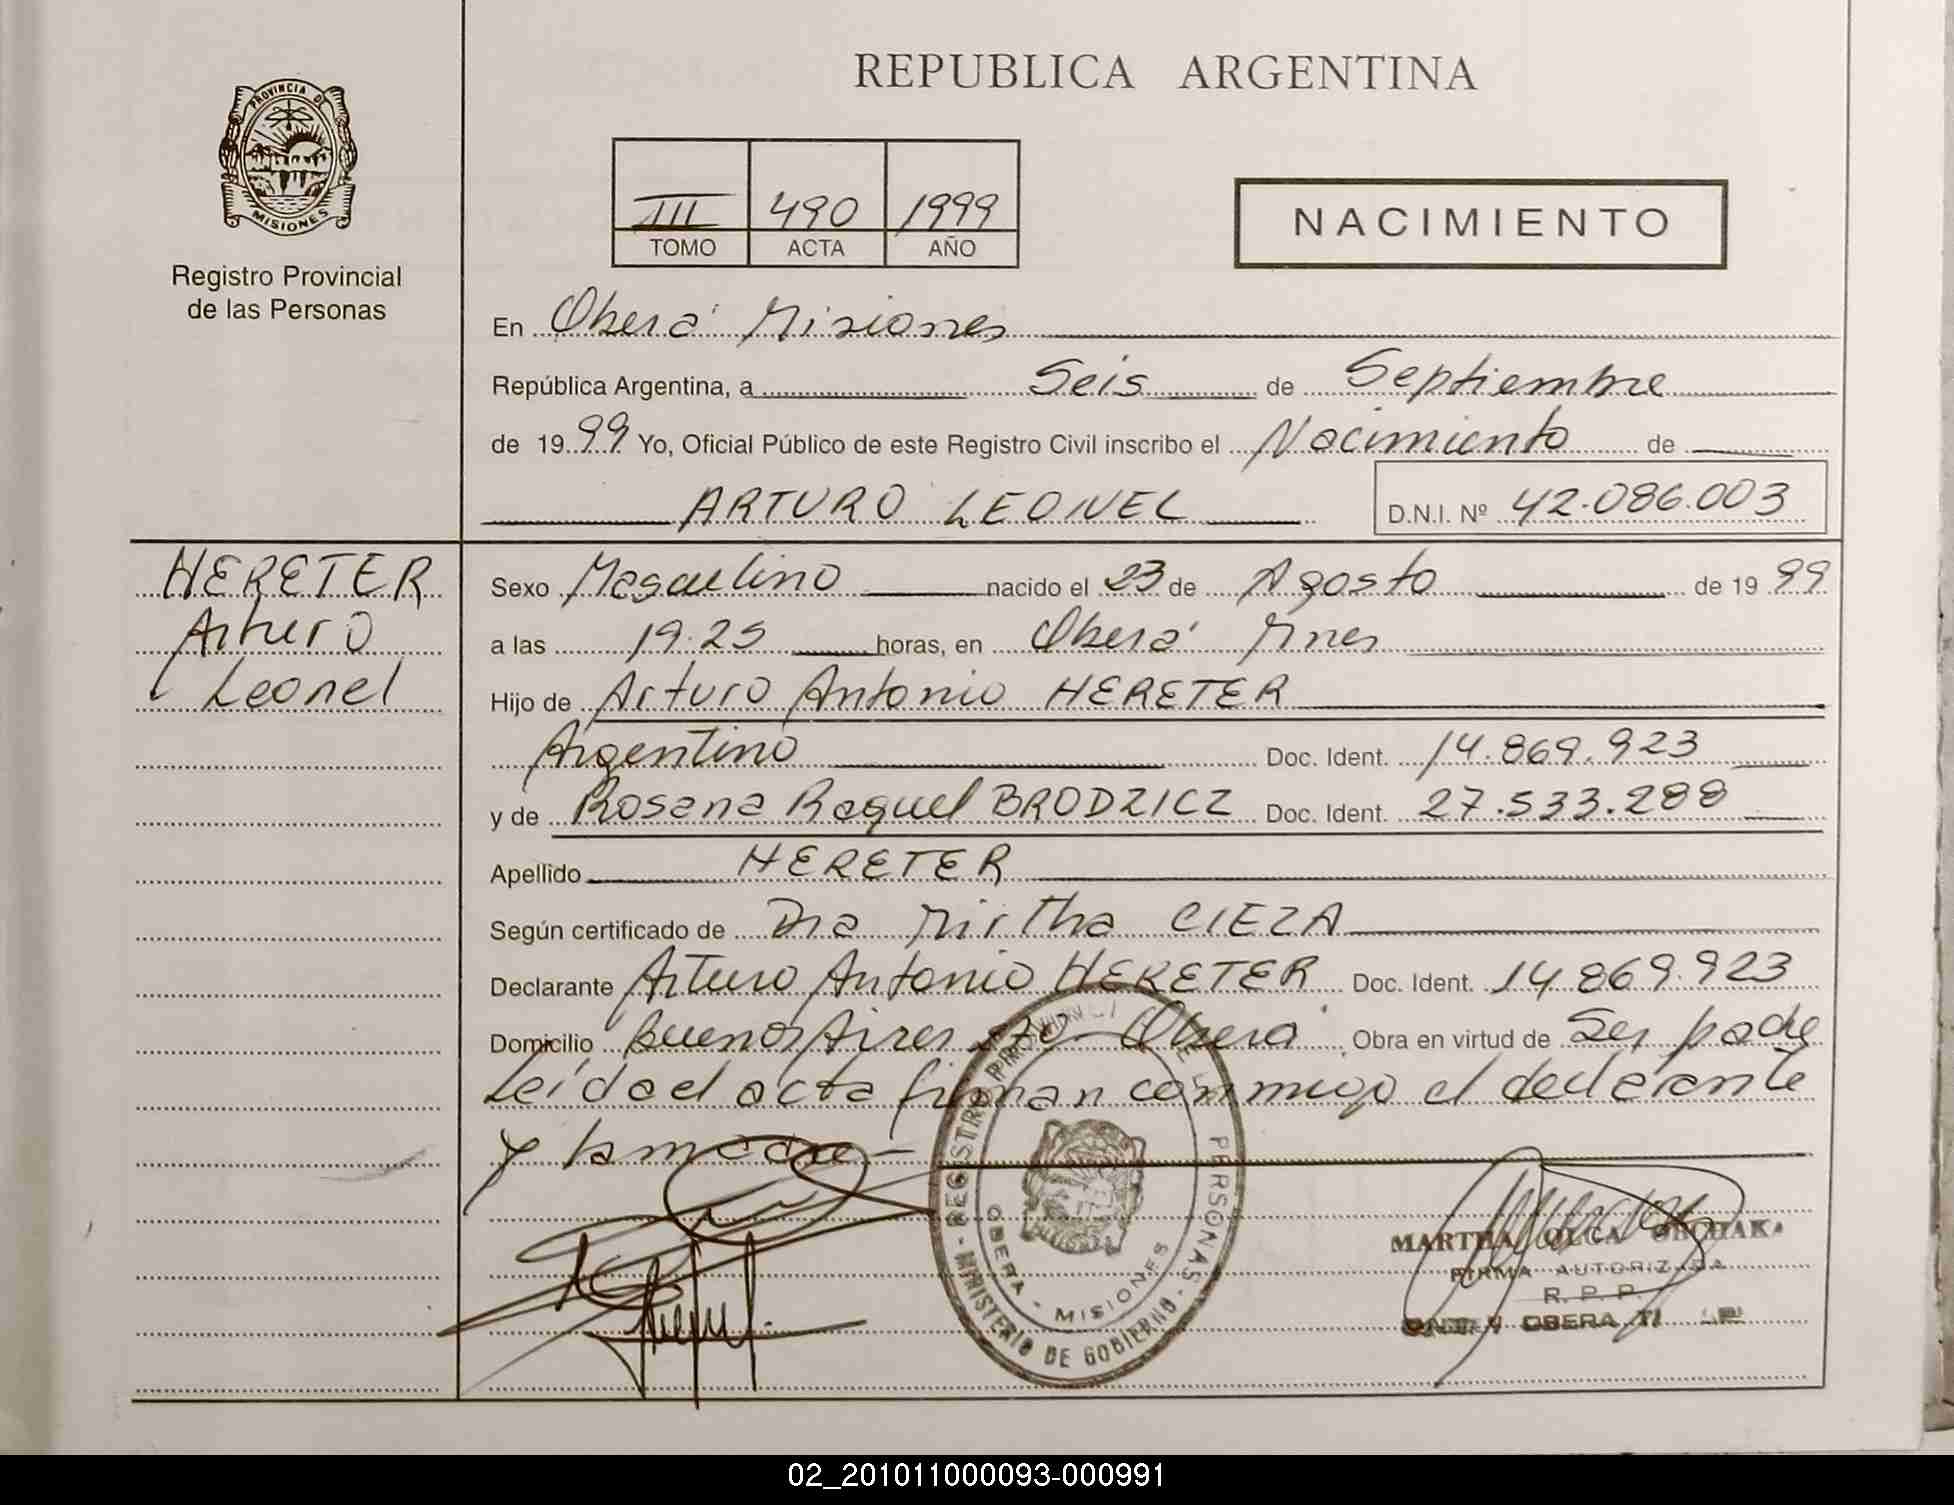 REPUBLICA ARGENTINA
PROVINCIA DE
MISIONES
Registro Provincial
de las Personas
III 490 1999
TOMO ACTA AÑO
NACIMIENTO
En Oberá Misiones
República Argentina, a Seis de Septiembre
de 1999 Yo, Oficial Público de este Registro Civil inscribo el Nacimiento de
ARTURO LEONEL
D.N.I. Nº 42.086.003
HERETER
Arturo
Leonel
Sexo Masculino nacido el 23 de Agosto de 1999
a las 19.25 horas, en Oberá Mnes
Hijo de Arturo Antonio HERETER
Argentino Doc. Ident. 14.869.923
y de Rosana Raquel BRODZICZ Doc. Ident. 27.533.288
Apellido HERETER
Según certificado de Dra Mirtha CIEZA
Declarante Arturo Antonio HERETER Doc. Ident. 14 869.923
Domicilio Buenos Aires Oberá Obra en virtud de Ser padre
Leída el acta firman conmigo el declarante
y la madre -
REGISTRO PROVINCI PERSONAS - MINISTERIO DE GOBIERNO -
OBERA - MISIONES
MARTHA OLGA
FIRMA AUTORIZADA
R. P. P.
OBERA
02_201011000093-000991